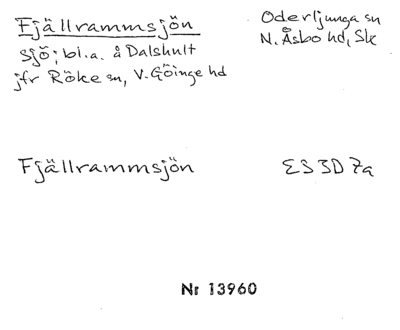 Fjällrammsjön
Oderljunga sn
N. Åsbo hd, Sk
sjö; bl.a. å Dalshult
jfr Röke sn, V. Göinge hd
Fjällrammsjön
ES 3D 7a
Nr 13960